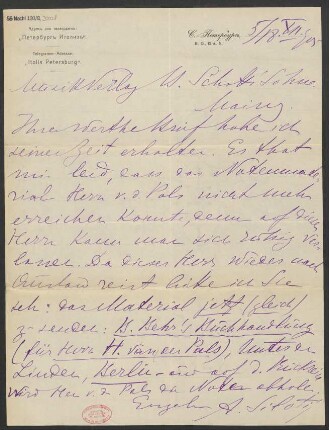 Адресъ для телеграммъ:
„Петербургъ Италия“.
Telegramm-Adresse:
"Italia Petersburg".
С.-Петербургъ,
5/18 XII 905
Musikverlag B. Schott's Söhne
Mainz.
Ihren werthen Brief habe ich
seiner Zeit erhalten. Es that
mir leid, dass das Notenmate-
rial Herr v. d. Pals nicht mehr
erreichen konnte, denn auf diesen
Herrn kann man sich ruhig ver-
lassen. Da dieser Herr wieder nach
Russland reist bitte ich Sie
sehr: das Material jetzt (gleich)
zu senden: B. Behr's Buchhandlung
(für Herrn H. van der Pals), Unter den
Linden, Berlin – und auf d. Rückreise
wird Herr v. d. Pals die Noten abholen.
Ergebenst A. Siloti